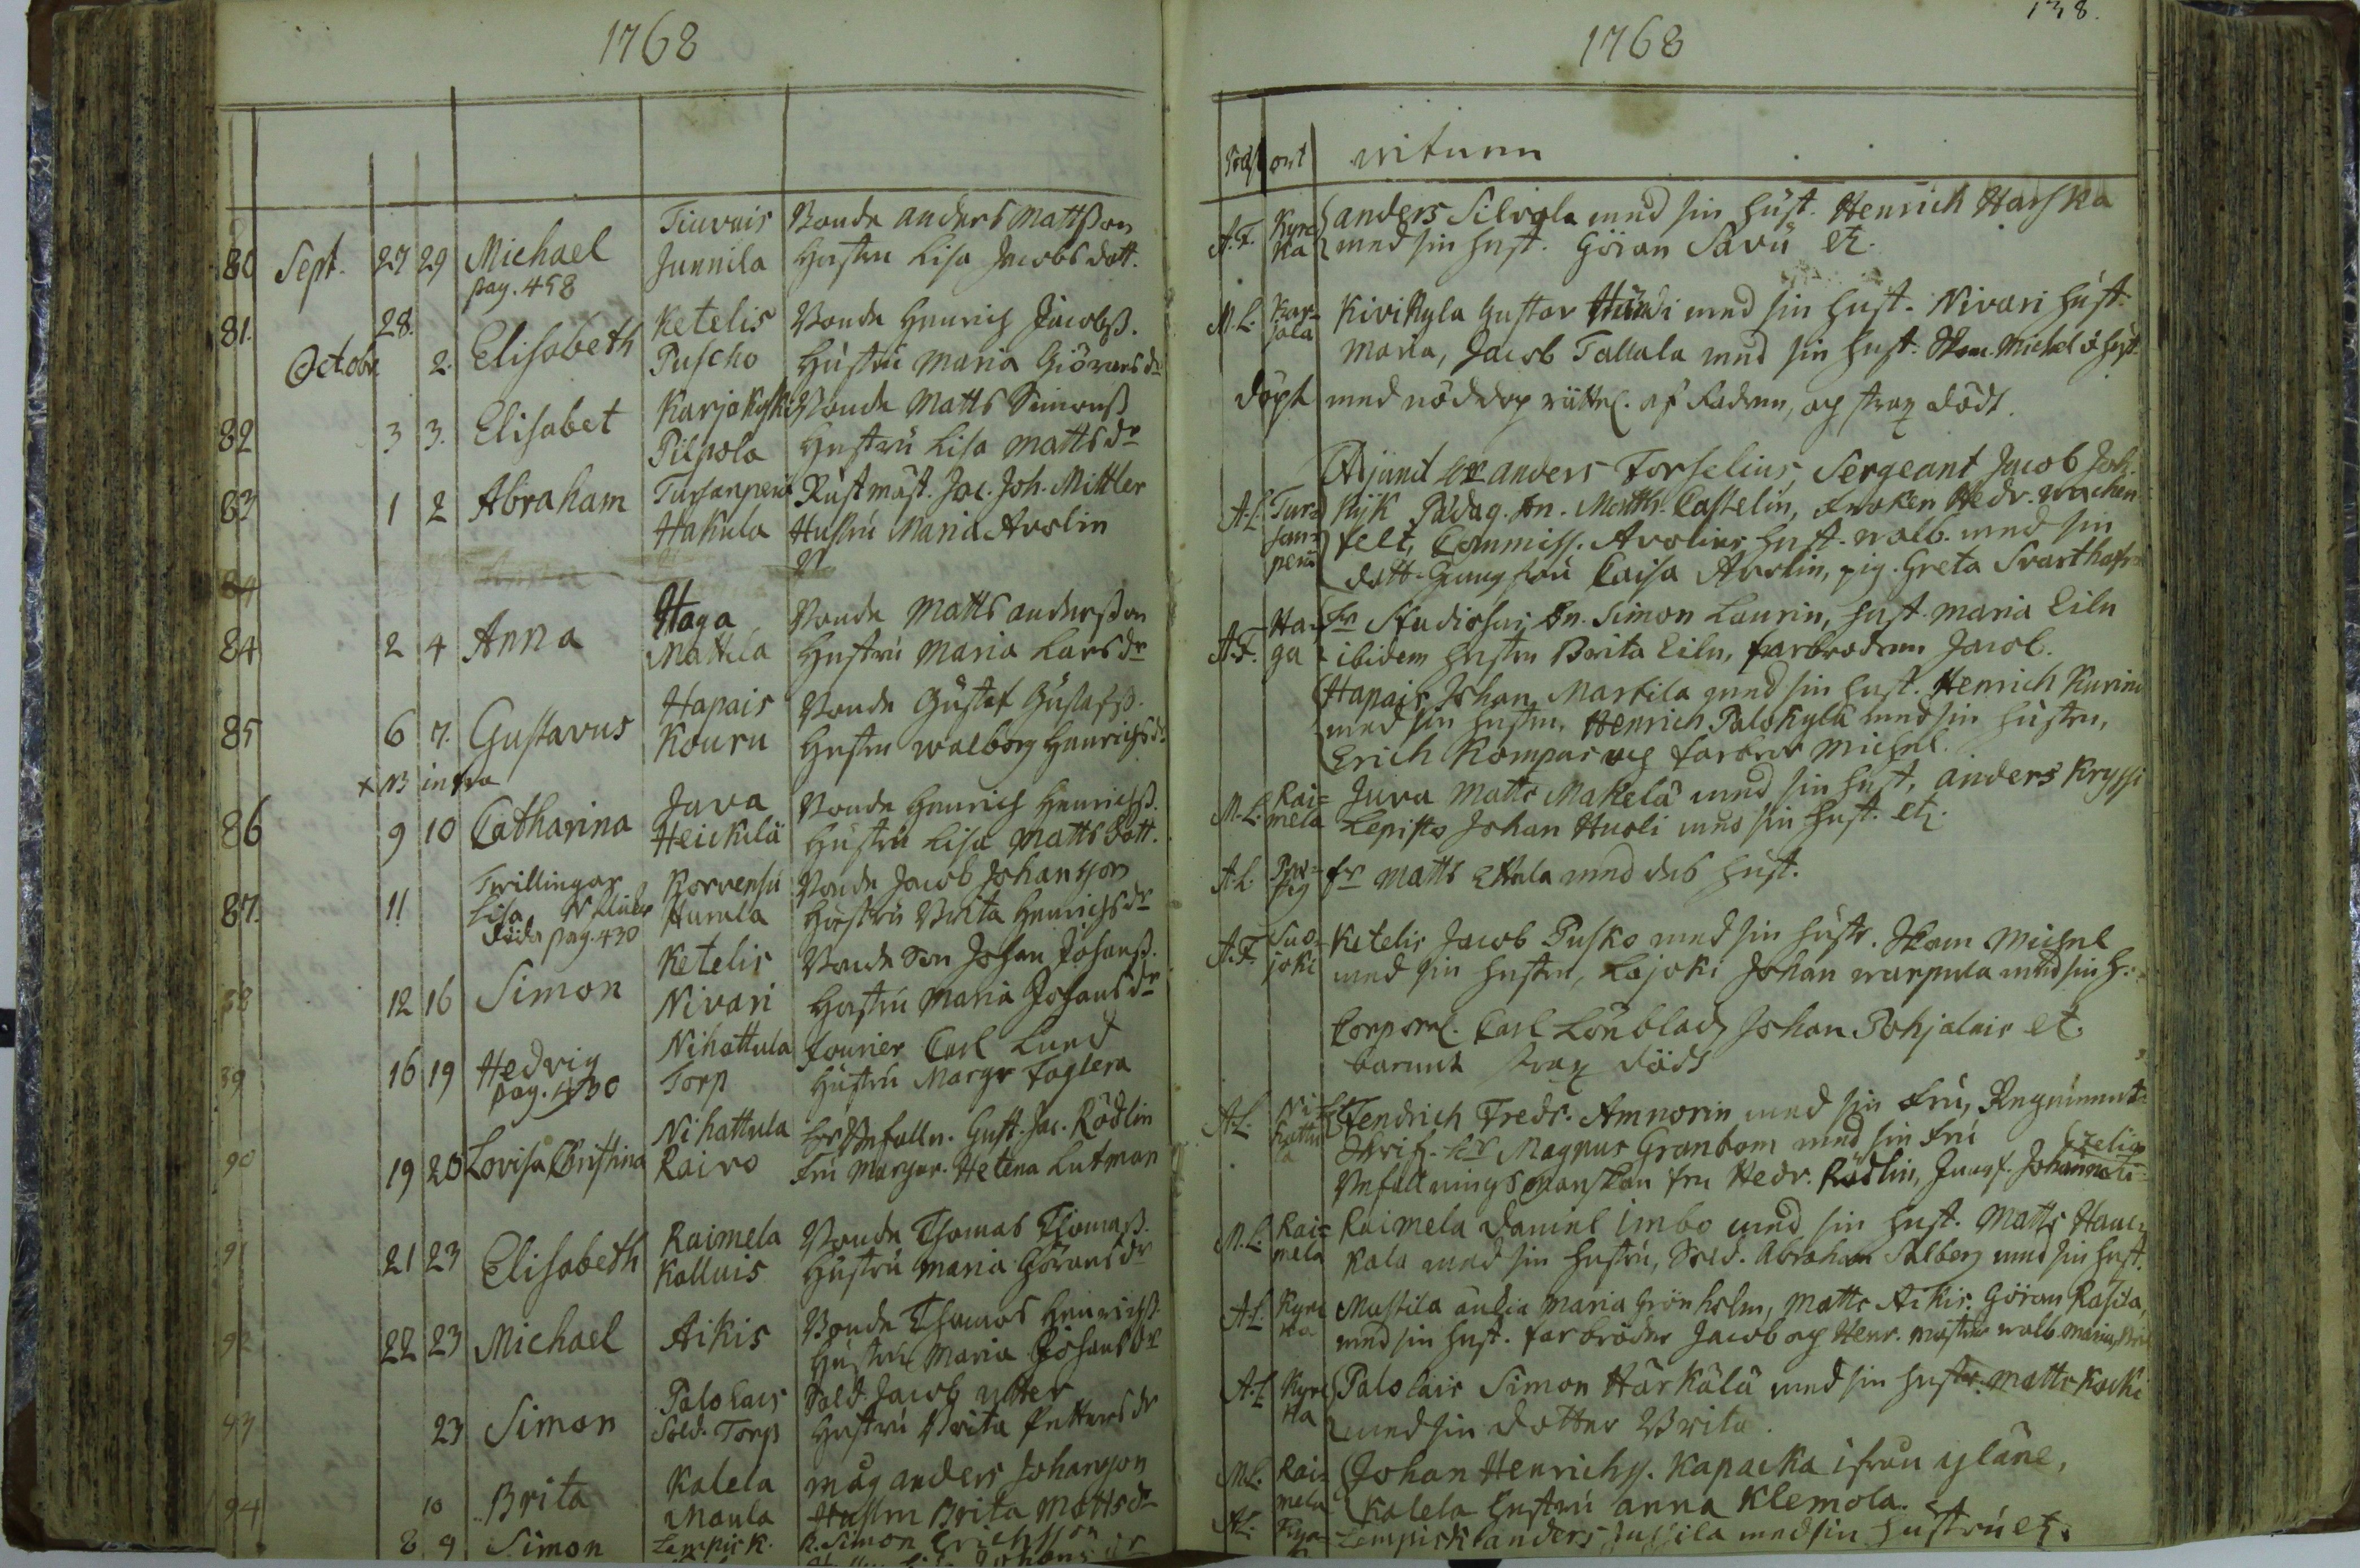 1768
Tiuvais Bonde anders Mattsson
80 Sept. 27 29 Michael Junnila Hustru Lisa Jacobs dott.
pag. 458
81. 28. Ketelis Bonde Henrich Jacobss.
Octobr 2. Elisabeth Puscho Hustru Maria Giörans dr
Karjakylä Bonde Matts Simonss
82 3 3. Elisabet Pilpola Hustru Lisa Matts dr
83 1 2 Abraham Tursanperä Rustmäst. Jac. Joh. Mittler
Hakula Hustru Maria Avolin
84
Haga Bonde Matts andersson
84 2 4 Anna Mattila Hustru Maria Lars dr
Hapais Bonde Gustaf Gustafss.
85 6 7. Gustavus Kouru Hustru walborg Henrichs dr
+ NB infra
Java Bonde Henrich Henrichss.
86 9 10 Catharina Heickilä Hustru Lisa Matts dott.
Twillingar Korvensu Bonde Jacob Johansson
87. 11 Lisa Hurula Hustru Brita Henrichs dr
döda pag. 430
Ketelis Bonde Son Johan Johanss.
88 12 16 Simon Nivari Hustru Maria Johans dr
Nihattula fourier Carl Lund
89 16 19 Hedvig Torp Hustru Margr Foglera
pag. 430
Nihattula Hr Befalln. Gust. Jac. Rödlin
90 19 20 Lovisa Christina Rairo Fru Margar. Helena Lutman
Raimela Bonde Thomas Thomass.
91 21 23 Elisabeth Kalluis Hustru Maria Görans dr
Bonde Thomas Henrichss.
92 22 23 Michael Aikis Hustru Maria Johans dr
Palolais Sold. Jacob ytter
93 23 Simon Sold. Torp Hustru Brita Petters dr
Kalela måg anders Johansson
94 10 Brita Maula Hustru Brita Matts dr
8 9 Simon Lempis k. R. Simon Erichsson
138.
1768
ort witnen
A. F. Kyrc anders Silvola med sin hust. Henrich Harska
ka med sin hust. Göran Savu etc.
M. L. Kar- Kivikyla Gustav med sin hust. Nivari hust.
jala Maria, Jacob Tallala med sin hust. Skom. Michel
döpt med nöddop rättel. af Fadren, og strax dödt.
Adjunct Hr anders Forselius, Sergeant Jacob Joh.
A. L. Tur- Kijk Pädag. An. Matth. Castelin, Froken Hedv. wachen
san- felt, Commiss. Avolins hust. walb. med sin
perä dott. Jungfru Caisa Avolin, pig. Greta Svarthafr
Ha- Hr Studiosus Dn. Simon Laurin, hust. Maria Eiln
A. F. ga ibidem hustru Brita Eiln, farbrodren Jacob.
Hapais Johan Martila med sin hust. Henrich Kurinu
med sin hustru, Henrich Palokylä med sin hustru,
Erich Kompas og farbror Michel.
Rai- Juva Matts Makelä med sin hust, anders Kryssi
M. L. mela Lepistö Johan Huoli med sin hust. etc.
A. L. fr Matts Ettala med des hust.
A. F. Suo- Ketelis Jacob Pusko med sin hustr. Skom Michel
joki med sin hustru, Lajoki Johan warpula med sin h.
Corporal. Carl Lönblad, Johan Pohjalais etc.
barnet strax dödt
A. L. Ni- Fendrich Fredr. Amnorin med sin Fru, Regements
hattu Skrif. Hr Magnus Granbom med sin Fru
la Befallningsmanskan Fru Hedv. Rödlin, Jungf. Johanna Li-
zelia
M. L. Rai- Raimela Daniel Imbo med sin hust. Matts Hauc
mela kala med sin hustru, Sold. Abraham Salberg med sin hust.
A L. Kyrc Mustila Maria Grönholm, Matts Aikis. Göran Rasila,
ka med sin hust. farbröder Jacob og Henr. walb. Maria
A. L Kyrc Palolais Simon Härkälä med sin hustr. Matts Kaski
ka med sin dotter Brita.
M L. Rai- Johan Henrichss. Kapacka ifrån yläne,
mela Kalela hustru anna Klemola.
A L. Kyrc Lempis K anders Jussila med sin hustru etc.